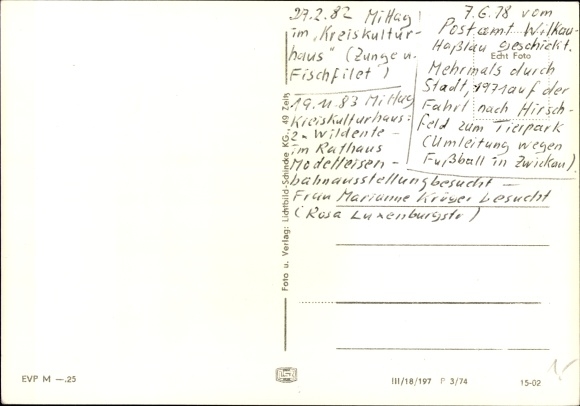 27.2.82 Mittag
im „Kreiskultur-
haus" (Zunge u.
Fischfilet)
19.11.83 Mittag
Kreiskulturhaus:
2x Wildente –
im Rathaus
Modelleisen-
bahnausstellung besucht –
Frau Marianne Krüger besucht
(Rosa Luxenburgstr)
7.6.78 vom
Postamt Wilkau-
Haßlau geschickt.
Echt Foto
Mehrmals durch
Stadt, 1971 auf der
Fahrt nach Hirsch-
feld zum Tierpark
(Umleitung wegen
Fußball in Zwickau).
Foto u. Verlag: Lichtbild-Schincke KG, 49 Zeitz
EVP M —.25
III/18/197 P 3/74
15-02